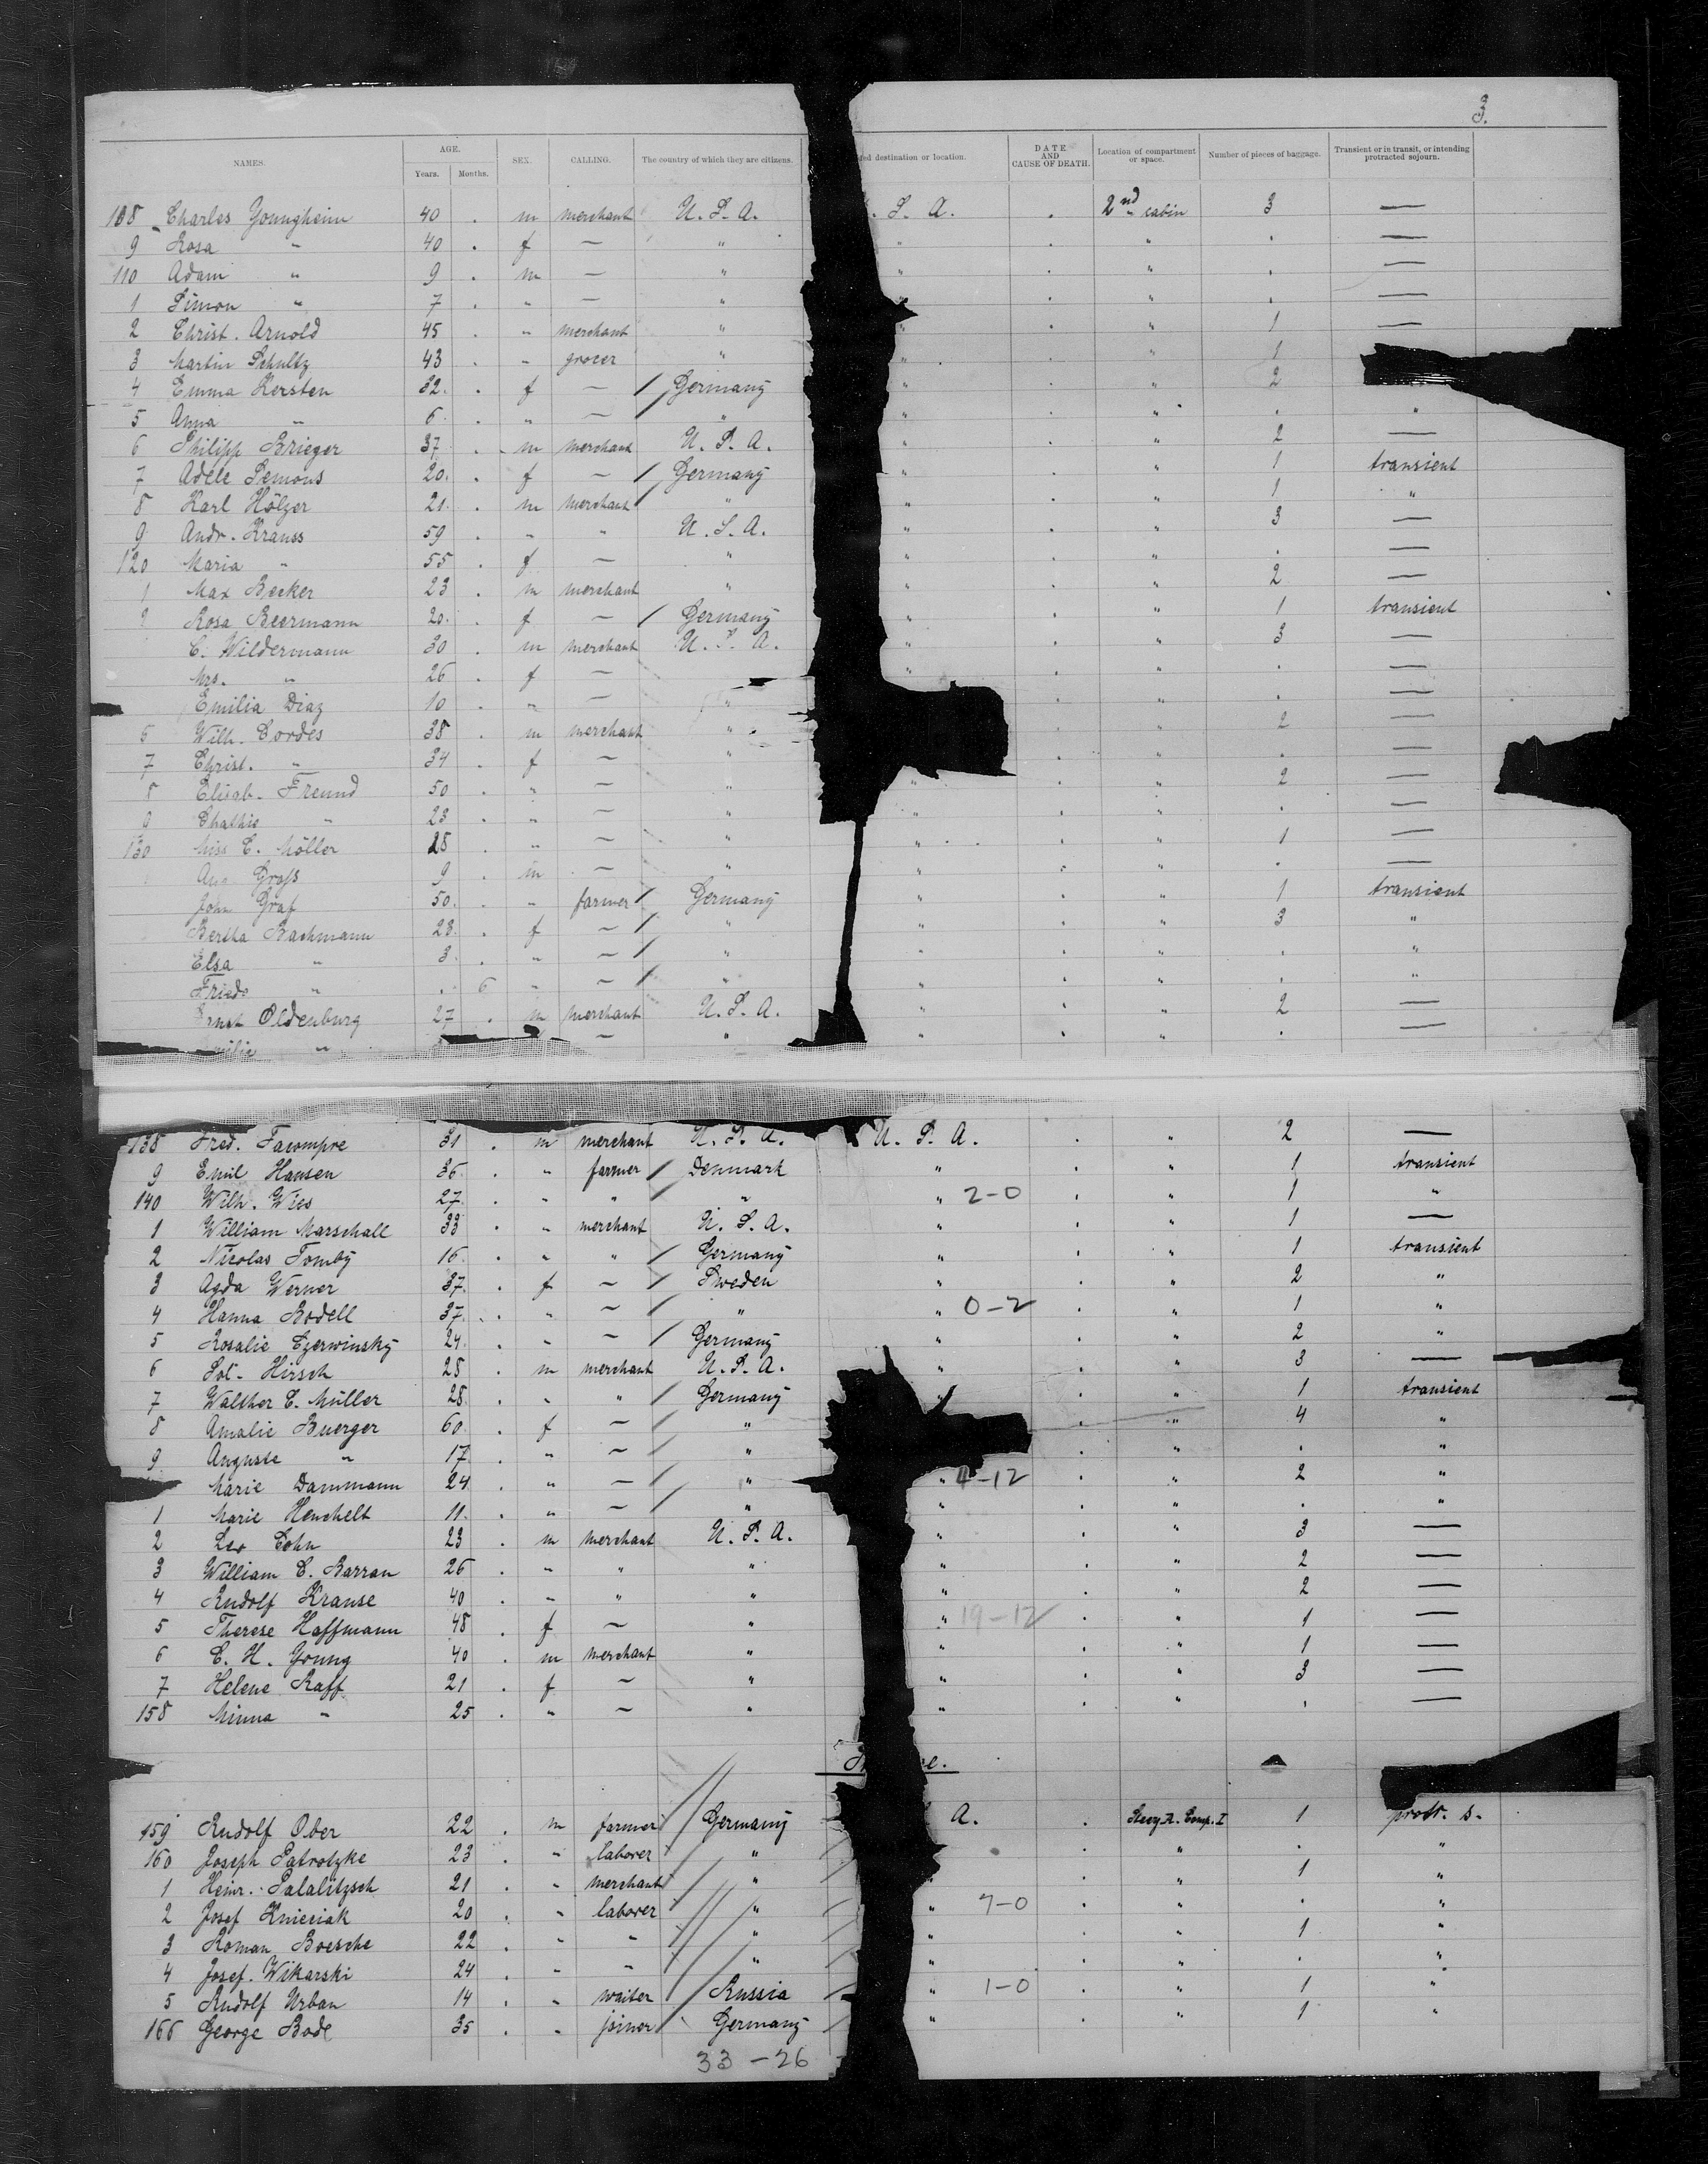 3.
NAMES. AGE. SEX. CALLING. The country of which they are citizens. destination or location. DATE AND CAUSE OF DEATH. Location of compartment or space. Number of pieces of baggage. Transient or in transit, or intending protracted sojourn.
Years. Months.
108 Charles Youngheim 40 . m merchant U. S. A. S. A. . 2nd cabin 3 —
9 Rosa " 40 . f — " " . " . —
110 Adam " 9 . m — " " . " . —
1 Simon " 7 . " — " " . " . —
2 Christ. Arnold 45 . " merchant " " . " 1 —
3 Martin Schultz 43 . " grocer " " . " 1
4 Emma Kersten 32. . f — / Germany " . " 2
5 Anna " 6 . " — / " " . " . "
6 Philipp Krieger 37 . m merchant U. S. A. " . " 2 —
7 Adele Semons 20. . f — / Germany " . " 1 transient
8 Karl Hölzer 21. . m merchant / " " . " 1 "
9 Andr. Krauss 59 . " " U. S. A. " . " 3 —
120 Maria " 55 . f — " " . " . —
1 Max Becker 23 . m merchant " " . " 2 —
2 Rosa Beermann 20. . f — / Germany " . " 1 transient
C. Wildermann 30 . m merchant U. S. A. " . " 3 —
Mrs. " 26 . f — " . " . —
Emilia Diaz 10 . " — " . " . —
6 Wilh. Cordes 38 . m merchant " . " 2 —
7 Christ. " 34 . f — " . " . —
8 Elisab. Freund 50 . " — " " . " 2 —
9 " 23 . " — " " . " . —
130 Miss C. Möller 28 . " — " " . " 1 —
Aug. Groß 9 . m — " " . " . —
John Graf 50. . " farmer / Germany " . " 1 transient
Bertha Bachmann 28. . f — / " " . " 3 "
Elsa " 3. . " — / " " . " . "
Frieda " . 6 " — / " " . " . "
Ernst Oldenburg 27 . m merchant U. S. A. " . " 2 —
" — " " . " . —
138 Fred. Facompre 31 . m merchant U. S. A. U. S. A. . " 2 —
9 Emil Hansen 36. . " farmer / Denmark " . " 1 transient
140 Wilh. Wies 27. . " " / " " 2-0 . " 1 "
1 William Marschall 33 . " merchant U. S. A. " . " 1 —
2 Nicolas Tomby 16. . " " / Germany " . " 1 transient
3 Agda Werner 37. . f — / Sweden " . " 2 "
4 Hanna Bodell 37. . " — / " " 0-2 . " 1 "
5 Rosalie Czerwinsky 24. . " — / Germany " . " 2 "
6 Sol. Hirsch 28 . m merchant U. S. A. " . " 3 —
7 Walther C. Müller 28. . " " / Germany . " 1 transient
8 Amalie Buerger 60. . f — / " . " 4 "
9 Auguste " 17. . " — / " . " . "
Marie Dammann 24. . " — / " " 4-12 . " 2 "
1 Marie Henchelt 11. . " — / " " . " . "
2 Leo Cohn 23 . m merchant U. S. A. " . " 3 —
3 William C. Barran 26 . " " " " . " 2 —
4 Rudolf Krause 40 . " " " " . " 2 —
5 Therese Haffmann 48 . f — " " 19-12 . " 1 —
6 C. H. Young 40 . m merchant " " . " 1 —
7 Helene Raff 21 . f — " " . " 3 —
158 Minna " 25 . " — " " . " . —
159 Rudolf Ober 22 . m farmer / Germany A. . Steeg. A. Comp. I 1 protr. s.
160 Joseph Patrotzke 23 . " laborer / " . " . "
1 Heinr. Palalitzsch 21 . " merchant / " . " 1 "
2 Josef Knieciak 20 . " laborer / " " 7-0 . " . "
3 Roman Boesche 22 . " " / " " . " 1 "
4 Josef. Wikarski 24 . " " / " " . " . "
5 Rudolf Urban 14 . " waiter / Russia " 1-0 . " 1 "
166 George Bode 35 . " joiner / Germany " . " 1 "
33-26